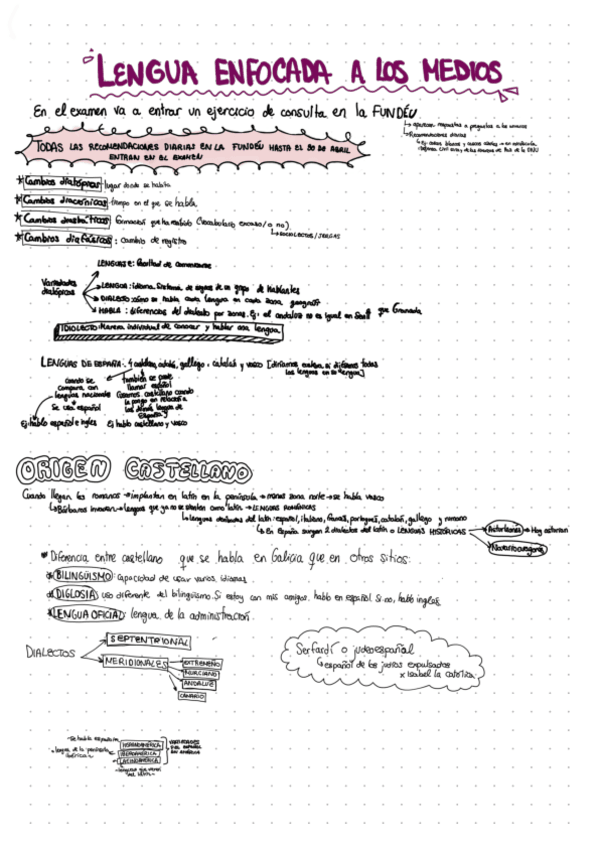 LENGUA ENFOCADA A LOS MEDIOS
En el examen va a entrar un ejercicio de consulta en la FUNDÉU
↳ aparecen respuestas a preguntas a los usuarios
↳ Recomendaciones diarias
TODAS LAS RECOMENDACIONES DIARIAS EN LA FUNDÉU HASTA EL 30 DE ABRIL
ENTRAN EN EL EXAMEN
* Cambios diatópicos: lugar donde se habla
* Cambios diacrónicos: tiempo en el que se habla
* Cambios diastráticos: formación que ha recibido (vocabulario escaso/o no)
↳ SOCIOLECTOS/JERGAS
* Cambios diafásicos: cambio de registro
LENGUAJE: Facultad de comunicarse
Variedades diatópicas
LENGUA: idioma. Sistema de signos de un grupo de hablantes
DIALECTO: cómo se habla cada lengua en cada zona
HABLA: diferencias del dialecto por zonas. Ej: el andaluz no es igual en Sevilla que Granada
IDIOLECTO: Manera individual de conocer y hablar una lengua
LENGUAS DE ESPAÑA: 4 castellano, catalán, gallego, y vasco
cuando se compara con lenguas nacionales
Se usa español
Ej: hablo español e inglés
también se puede llamar español
castellano cuando lo pongo en relación a las demás lenguas de España
Ej hablo castellano y vasco
ORIGEN CASTELLANO
Cuando llegan los romanos → implantan en latín en la península → menos zona norte → se habla vasco
↳ Bárbaros invaden → lenguas que ya no se sienten como latín → LENGUAS ROMÁNICAS
↳ lenguas derivadas del latín: español, italiano, francés, portugués, catalán, gallego y rumano
↳ En España surgen 2 dialectos del latín o LENGUAS HISTÓRICAS
Asturleonés → Hoy asturiano
Navarroaragonés
* Diferencia entre castellano que se habla en Galicia que en otros sitios:
* BILINGÜISMO: capacidad de usar varios idiomas
* DIGLOSIA: uso diferente del bilingüismo. Si estoy con mis amigos, hablo en español. Si no, hablo inglés.
* LENGUA OFICIAL: lengua de la administración
DIALECTOS
SEPTENTRIONAL
MERIDIONALES
EXTREMEÑO
MURCIANO
ANDALUZ
CANARIO
Serfardí o judeoespañol
↳ español de los judíos expulsados
x Isabel la católica
HISPANOAMÉRICA
IBEROAMÉRICA
LATINOAMÉRICA